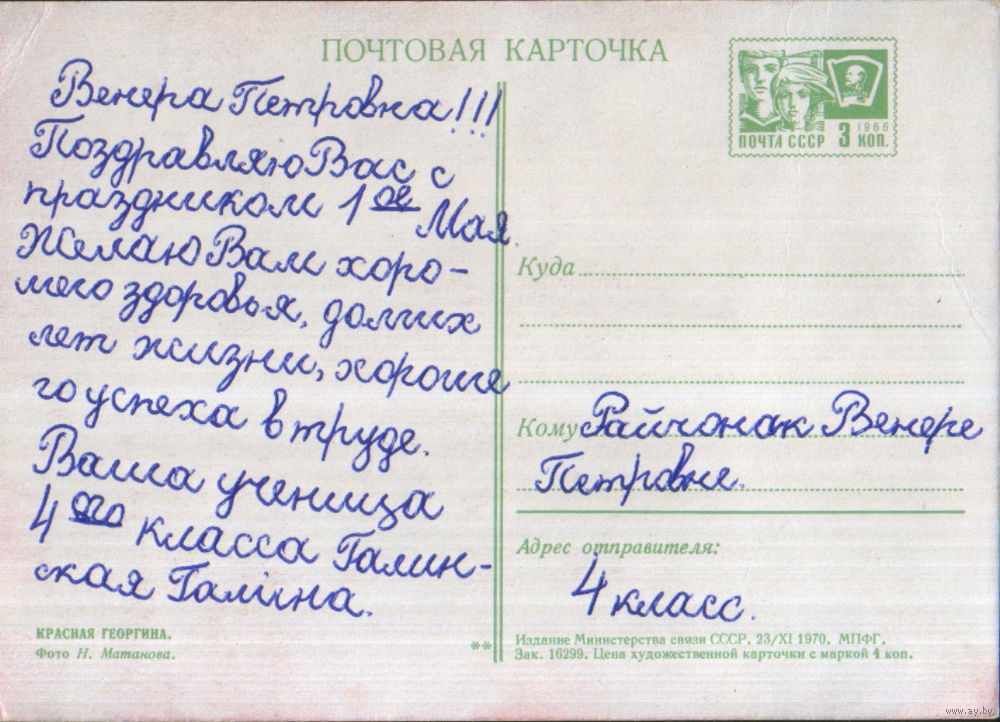 ПОЧТОВАЯ КАРТОЧКА
ПОЧТА СССР 3 КОП.
1966
Венера Петровна!!!
Поздравляю Вас с
праздником 1ое Мая.
Желаю Вам хоро-
шего здоровья, долгих
лет жизни, хороше
го успеха в труде.
Ваша ученица
4ого класса Галин-
ская Галіна.
КРАСНАЯ ГЕОРГИНА.
Фото Н. Матанова.
**
Куда
Кому Райчонак Венере
Петровне.
Адрес отправителя:
4 класс.
Издание Министерства связи СССР. 23/XI 1970. МПФГ.
Зак. 16299. Цена художественной карточки с маркой 4 коп.
www.ay.by